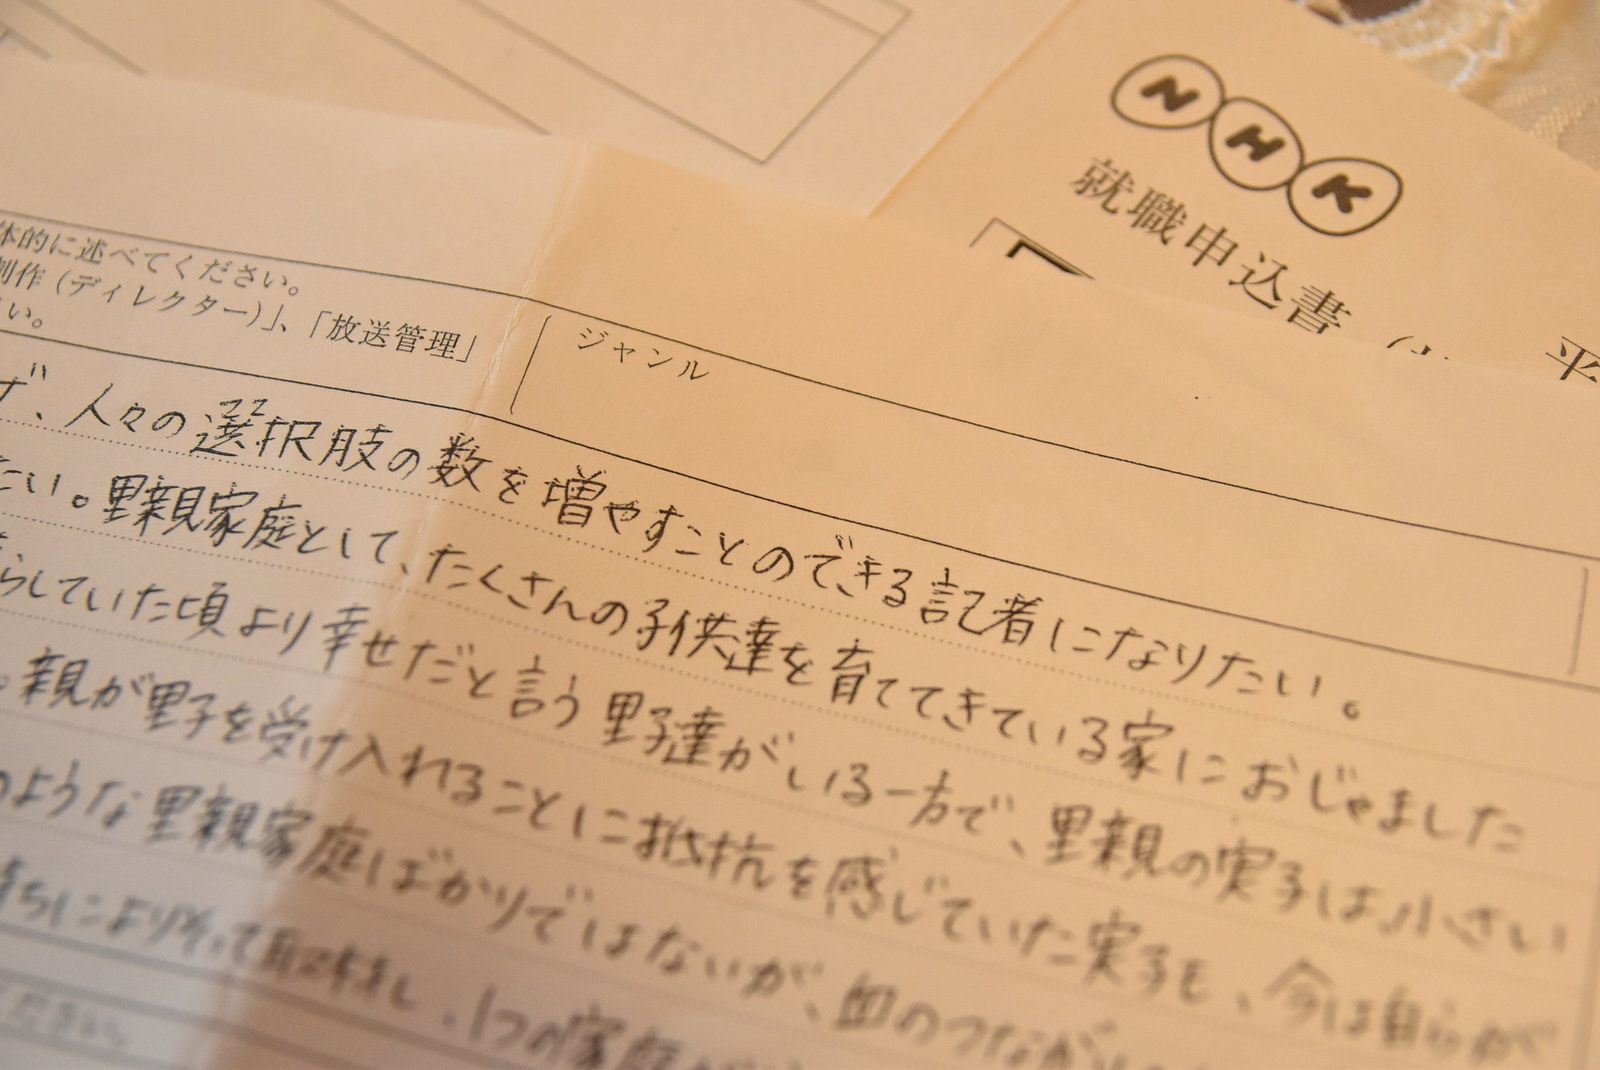 NHK
就職申込書
体的に述べてください。
制作（ディレクター）」、「放送管理」
い。
ジャンル
、人々の選択肢の数を増やすことのできる記者になりたい。
たい。里親家庭として、たくさんの子供達を育ててきている家におじゃました
らしていた頃より幸せだと言う里子達がいる一方で、里親の実子は、小さい
。親が里子を受け入れることに抵抗を感じていた実子も、今は自らが
のような里親家庭ばかりではないが、血のつながり
持ちによりそって取材し、1つの家庭が
ください。